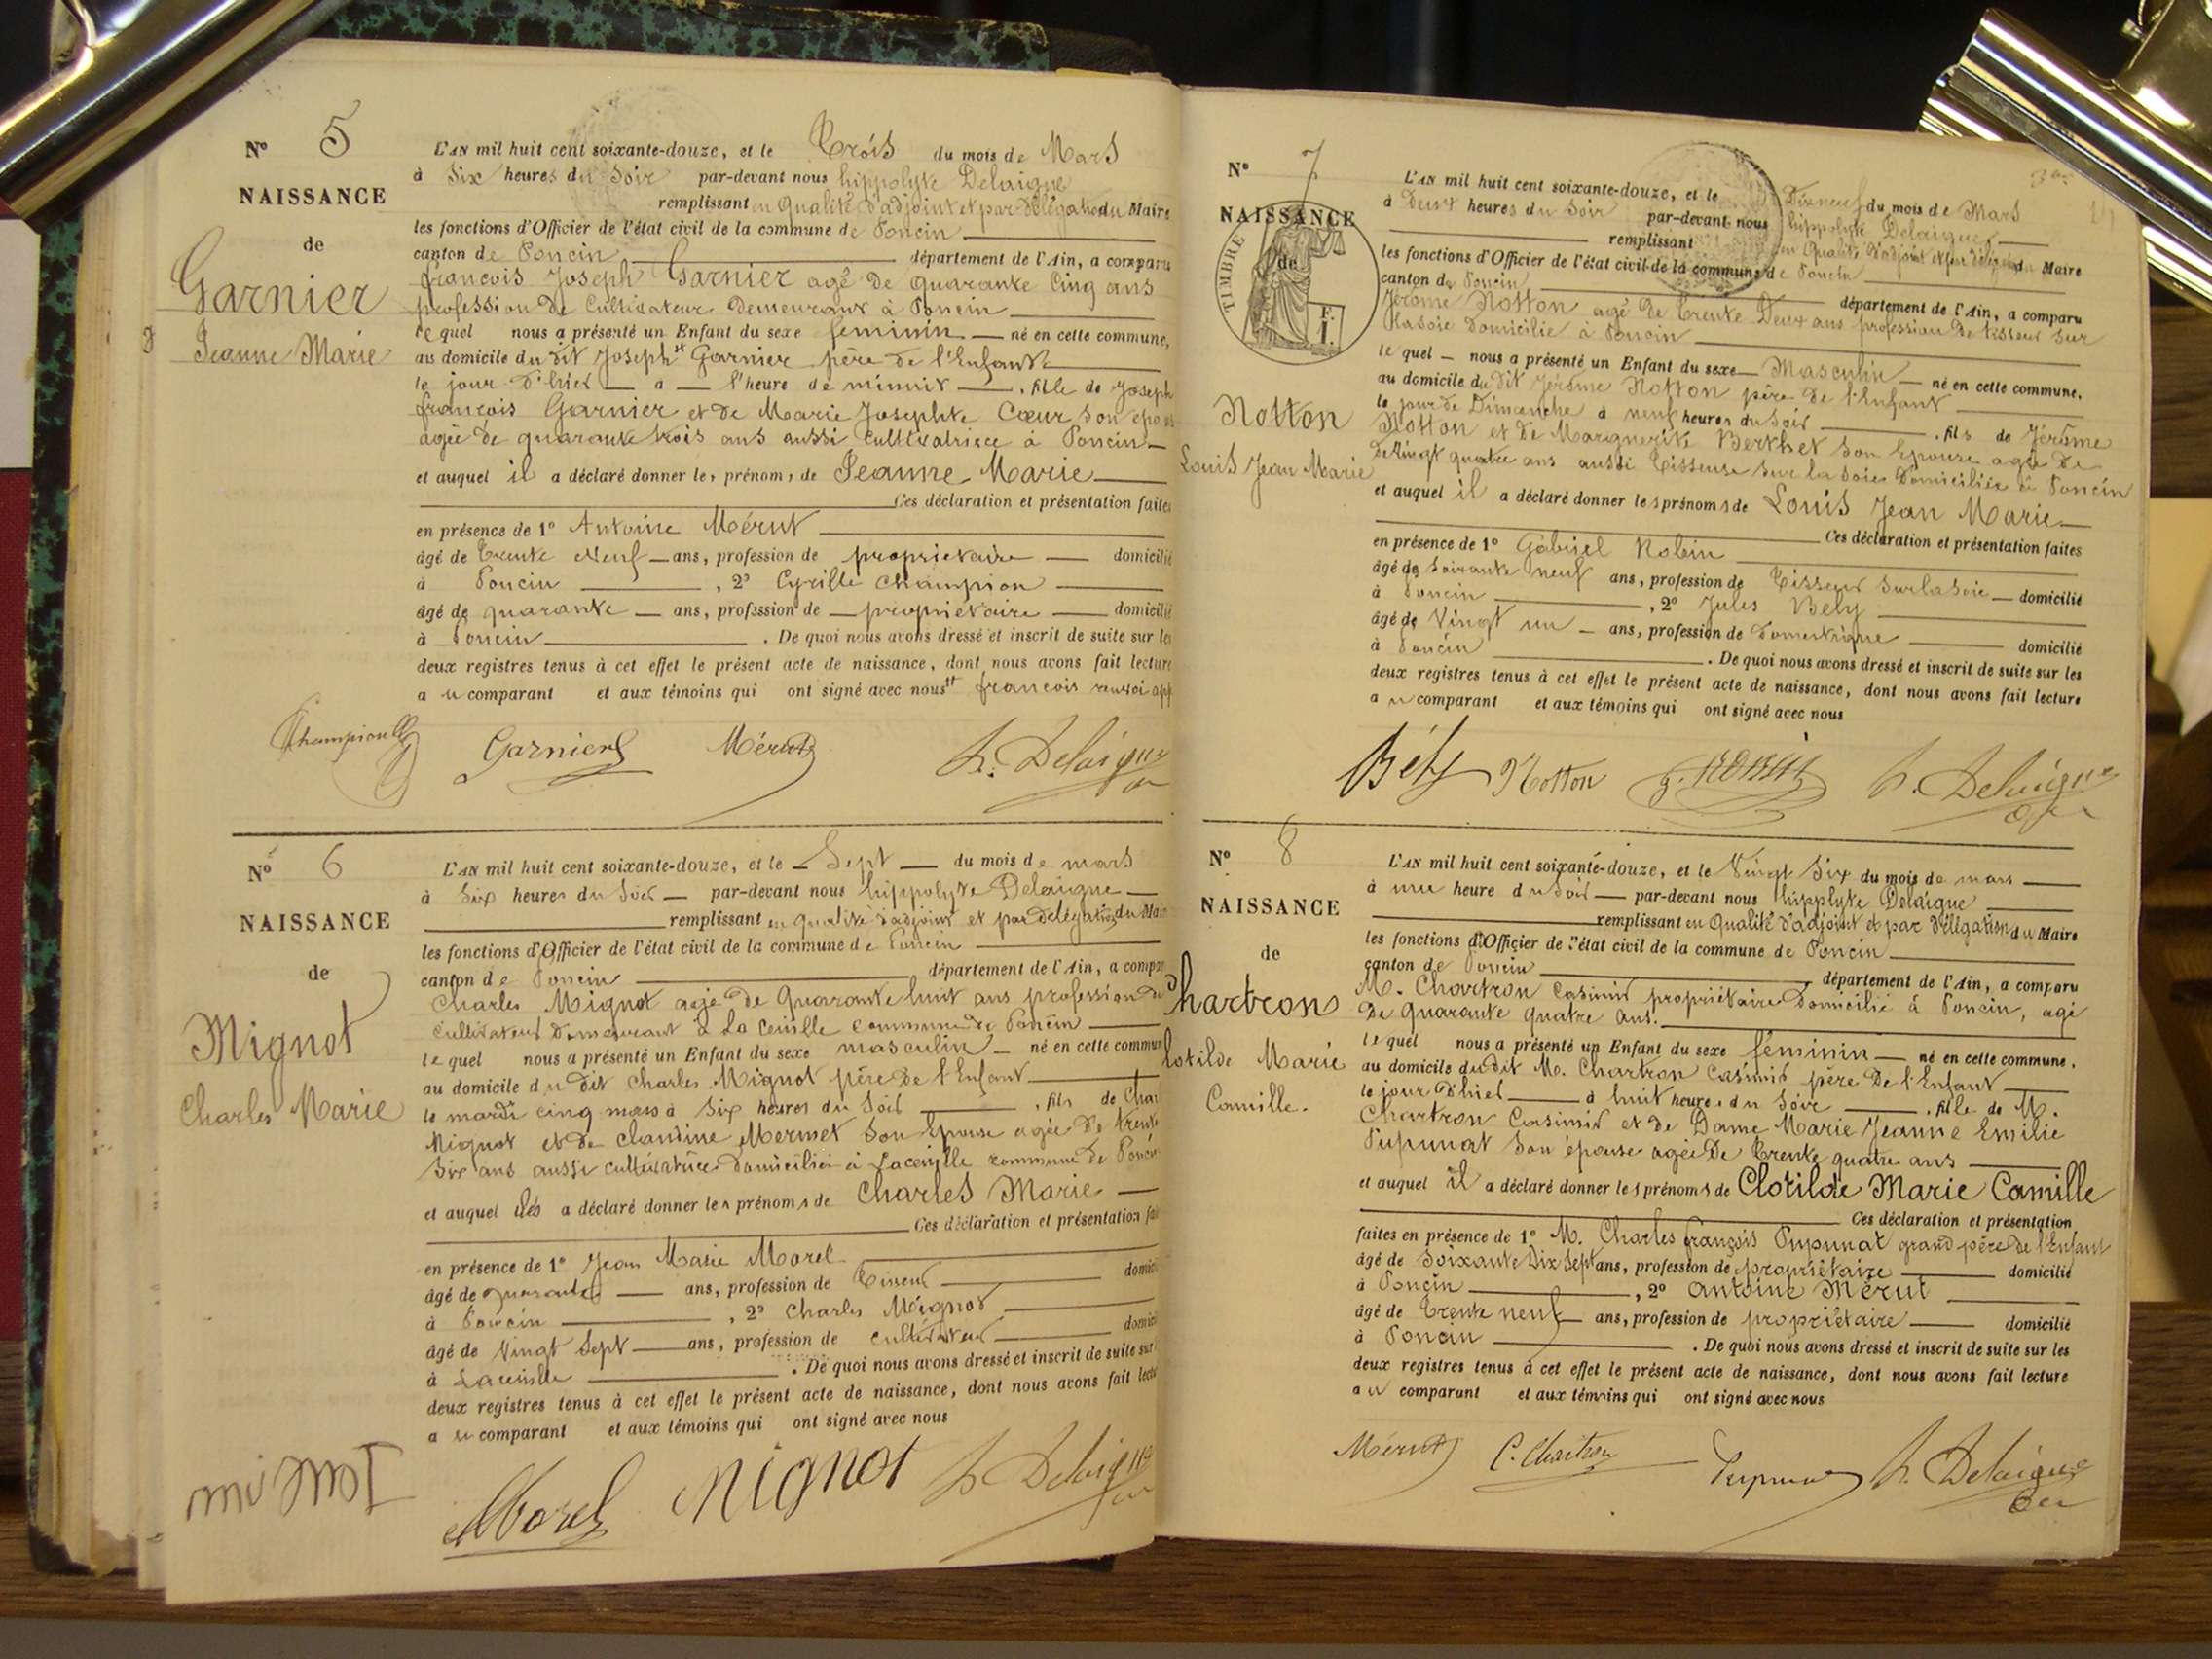 N° 5
NAISSANCE
de
Garnier
Jeanne Marie
L'AN mil huit cent soixante-douze, et le Trois du mois de Mars
à Six heures du Soir par-devant nous hippolyte Delaigue
remplissant en Qualité d'adjoint et par Délégation du Maire
les fonctions d'Officier de l'état civil de la commune de Poncin
canton de Poncin département de l'Ain, a comparu
francois Joseph Garnier agé de quarante Cinq ans
profession de Cultivateur Demeurant à Poncin
le quel nous a présenté un Enfant du sexe feminin né en cette commune,
au domicile du dit Joseph Garnier père de l'Enfant
le jour d'hier à l'heure de minuit , fille de Joseph
francois Garnier et de Marie Josephte Cœur son
agée de quarante trois ans aussi cultivatrice à Poncin
et auquel il a déclaré donner les prénoms de Jeanne Marie
Ces déclaration et présentation faites
en présence de 1° Antoine Mérut
âgé de Trente Neuf ans, profession de propriétaire domicilié
à Poncin , 2° Cyrille Champion
âgé de quarante ans, profession de propriétaire domicilié
à Poncin . De quoi nous avons dressé et inscrit de suite sur les
deux registres tenus à cet effet le présent acte de naissance, dont nous avons fait lecture
au comparant et aux témoins qui ont signé avec nous francois renvoi app
Champion Garnier Mérut h. Delaigue
N° 6
NAISSANCE
de
Mignot
Charles Marie
L'AN mil huit cent soixante-douze, et le Sept du mois de mars
à Six heures du Soir par-devant nous hippolyte Delaigue
remplissant en qualité d'adjoint et par délégation du Maire
les fonctions d'Officier de l'état civil de la commune de Poncin
canton de Poncin département de l'Ain, a compar
Charles Mignot agé de Quarante huit ans profession de
cultivateur demeurant à La Ceuille commune de Poncin
le quel nous a présenté un Enfant du sexe masculin né en cette commun
au domicile du dit Charles Mignot père de l'Enfant
le mardi cinq mars à Six heures du Soir , fils de Char
Mignot et de Claudine Mermet son Epouse agée de trente
Six ans aussi cultivatrice domiciliée à Laceuille commune de Poncin
et auquel a déclaré donner les prénoms de Charles Marie
Ces déclaration et présentation fai
en présence de 1° Jean Marie Morel
âgé de quarante ans, profession de domici
à Poncin , 2° Charles Mignot
âgé de Vingt Sept ans, profession de cultivateur domici
à Laceuille . De quoi nous avons dressé et inscrit de suite sur
deux registres tenus à cet effet le présent acte de naissance, dont nous avons fait lectu
au comparant et aux témoins qui ont signé avec nous
Morel Mignot h. Delaigue
N° 7
NAISSANCE
de
TIMBRE
Notton
Louis Jean Marie
L'AN mil huit cent soixante-douze, et le Dixneuf du mois de Mars
à Deux heures du Soir par-devant nous hippolyte Delaigue
remplissant en Qualité d'adjoint et par délégation du Maire
les fonctions d'Officier de l'état civil de la commune de Poncin
canton de Poncin département de l'Ain, a comparu
Jérome Notton agé de Trente Deux ans profession de tisseur sur
lasoie domicilié à Poncin
le quel nous a présenté un Enfant du sexe Masculin né en cette commune.
au domicile du dit Jérome Notton père de l'Enfant
le jour de Dimanche à neuf heures du Soir , fils de Jérôme
Notton et de Marguerite Berthet son Epouse agée de
Vingt quatre ans aussi Tisseuse sur la Soie domiciliée à Poncin
et auquel il a déclaré donner les prénoms de Louis Jean Marie
Ces déclaration et présentation faites
en présence de 1° Gabriel Robin
âgé de Soixante neuf ans, profession de Tisseur Sur la Soie domicilié
à Poncin , 2° Jules Bély
âgé de Vingt un ans, profession de domestique domicilié
à Poncin . De quoi nous avons dressé et inscrit de suite sur les
deux registres tenus à cet effet le présent acte de naissance, dont nous avons fait lecture
au comparant et aux témoins qui ont signé avec nous
Bély Notton g. ROBIN h. Delaigue
N° 8
NAISSANCE
de
Chartron
Clotilde Marie
Camille.
L'AN mil huit cent soixante-douze, et le Vingt Six du mois de mars
à une heure du Soir par-devant nous hipplyte Delaigue
remplissant en Qualité d'adjoint et par délégation du Maire
les fonctions d'Officier de l'état civil de la commune de Poncin
canton de Poncin département de l'Ain, a comparu
M. Chartron Casimir propriétaire domicilié à Poncin, agé
de quarante quatre ans.
le quel nous a présenté un Enfant du sexe féminin né en cette commune.
au domicile du dit M. Chartron Casimir père de l'Enfant
le jour d'hier à huit heures du Soir , fille de M.
Chartron Casimir et de Dame Marie Jeanne Emilie
Pupunat Son épouse agée De Trente quatre ans
et auquel il a déclaré donner les prénoms de Clotilde Marie Camille
Ces déclaration et présentation
faites en présence de 1° M. Charles françois Pupunat grand père de l'Enfant
âgé de Soixante Dix Sept ans, profession de propriétaire domicilié
à Poncin , 2° Antoine Mérut
âgé de Trente neuf ans, profession de propriétaire domicilié
à Poncin . De quoi nous avons dressé et inscrit de suite sur les
deux registres tenus à cet effet le présent acte de naissance, dont nous avons fait lecture
au comparant et aux témoins qui ont signé avec nous
Mérut C. Chartron Pupunat h. Delaigue